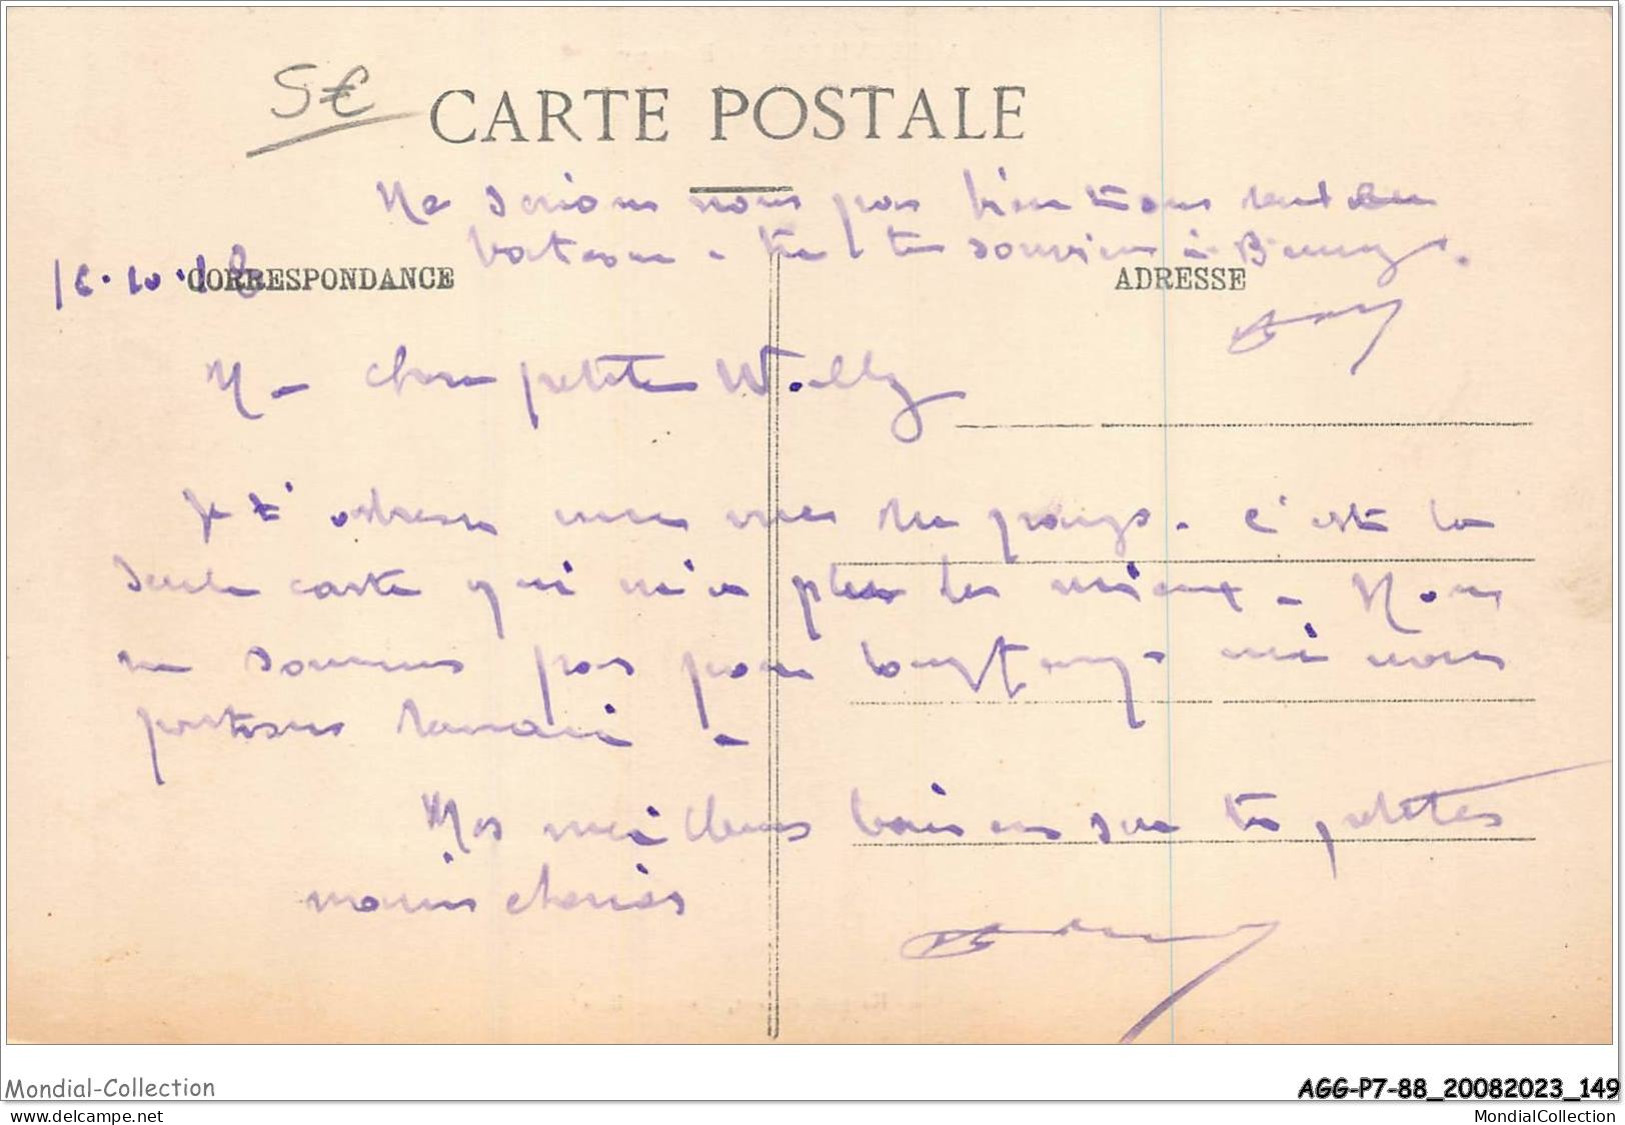 5€
CARTE POSTALE
Ne serions nous pas bien tous seul au
bateau - te souviens à
16.10.18
CORRESPONDANCE
ADRESSE
Ma chere petite Willy
Je t'adresse une vue du pays. C'est la
seule carte qui m'a plu le mieux. Nous
ne sommes pas pour longtemps ici nous
partons demain.
Mes meilleurs baisers sur tes petites
mains cheries
Mondial-Collection
AGG-P7-88_20082023_149
www.delcampe.net
MondialCollection